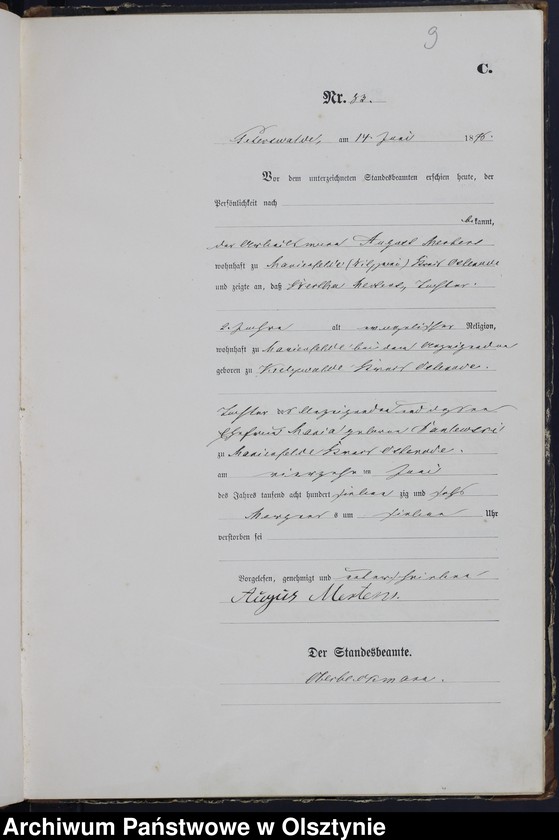 9
C.
Nr. 33.
Peterswalde, am 14. Juni 1876.
Vor dem unterzeichneten Standesbeamten erschien heute, der
Persönlichkeit nach
bekannt,
der Arbeitsmann August Mertens
wohnhaft zu Marienfelde Kreis Osterode
und zeigte an, daß Mertens, Tochter
Jahre alt evangelischer Religion,
wohnhaft zu Marienfelde bei dem Anzeigenden
geboren zu Kreis Osterode.
Tochter des Anzeigenden und dessen
Ehefrau Maria geborene
zu Marienfelde Kreis Osterode.
am vierzehn ten Juni
des Jahres tausend acht hundert sieben zig und sechs
Morgens um sieben Uhr
verstorben sei
Vorgelesen, genehmigt und unterschrieben
August Mertens.
Der Standesbeamte.
Archiwum Państwowe w Olsztynie